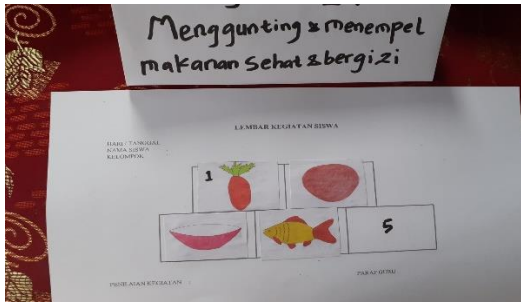 Menggunting & menempel
makanan sehat & bergizi
LEMBAR KEGIATAN SISWA
HARI / TANGGAL
NAMA SISWA
KELOMPOK
1
5
PENILAIAN KEGIATAN :
PARAF GURU